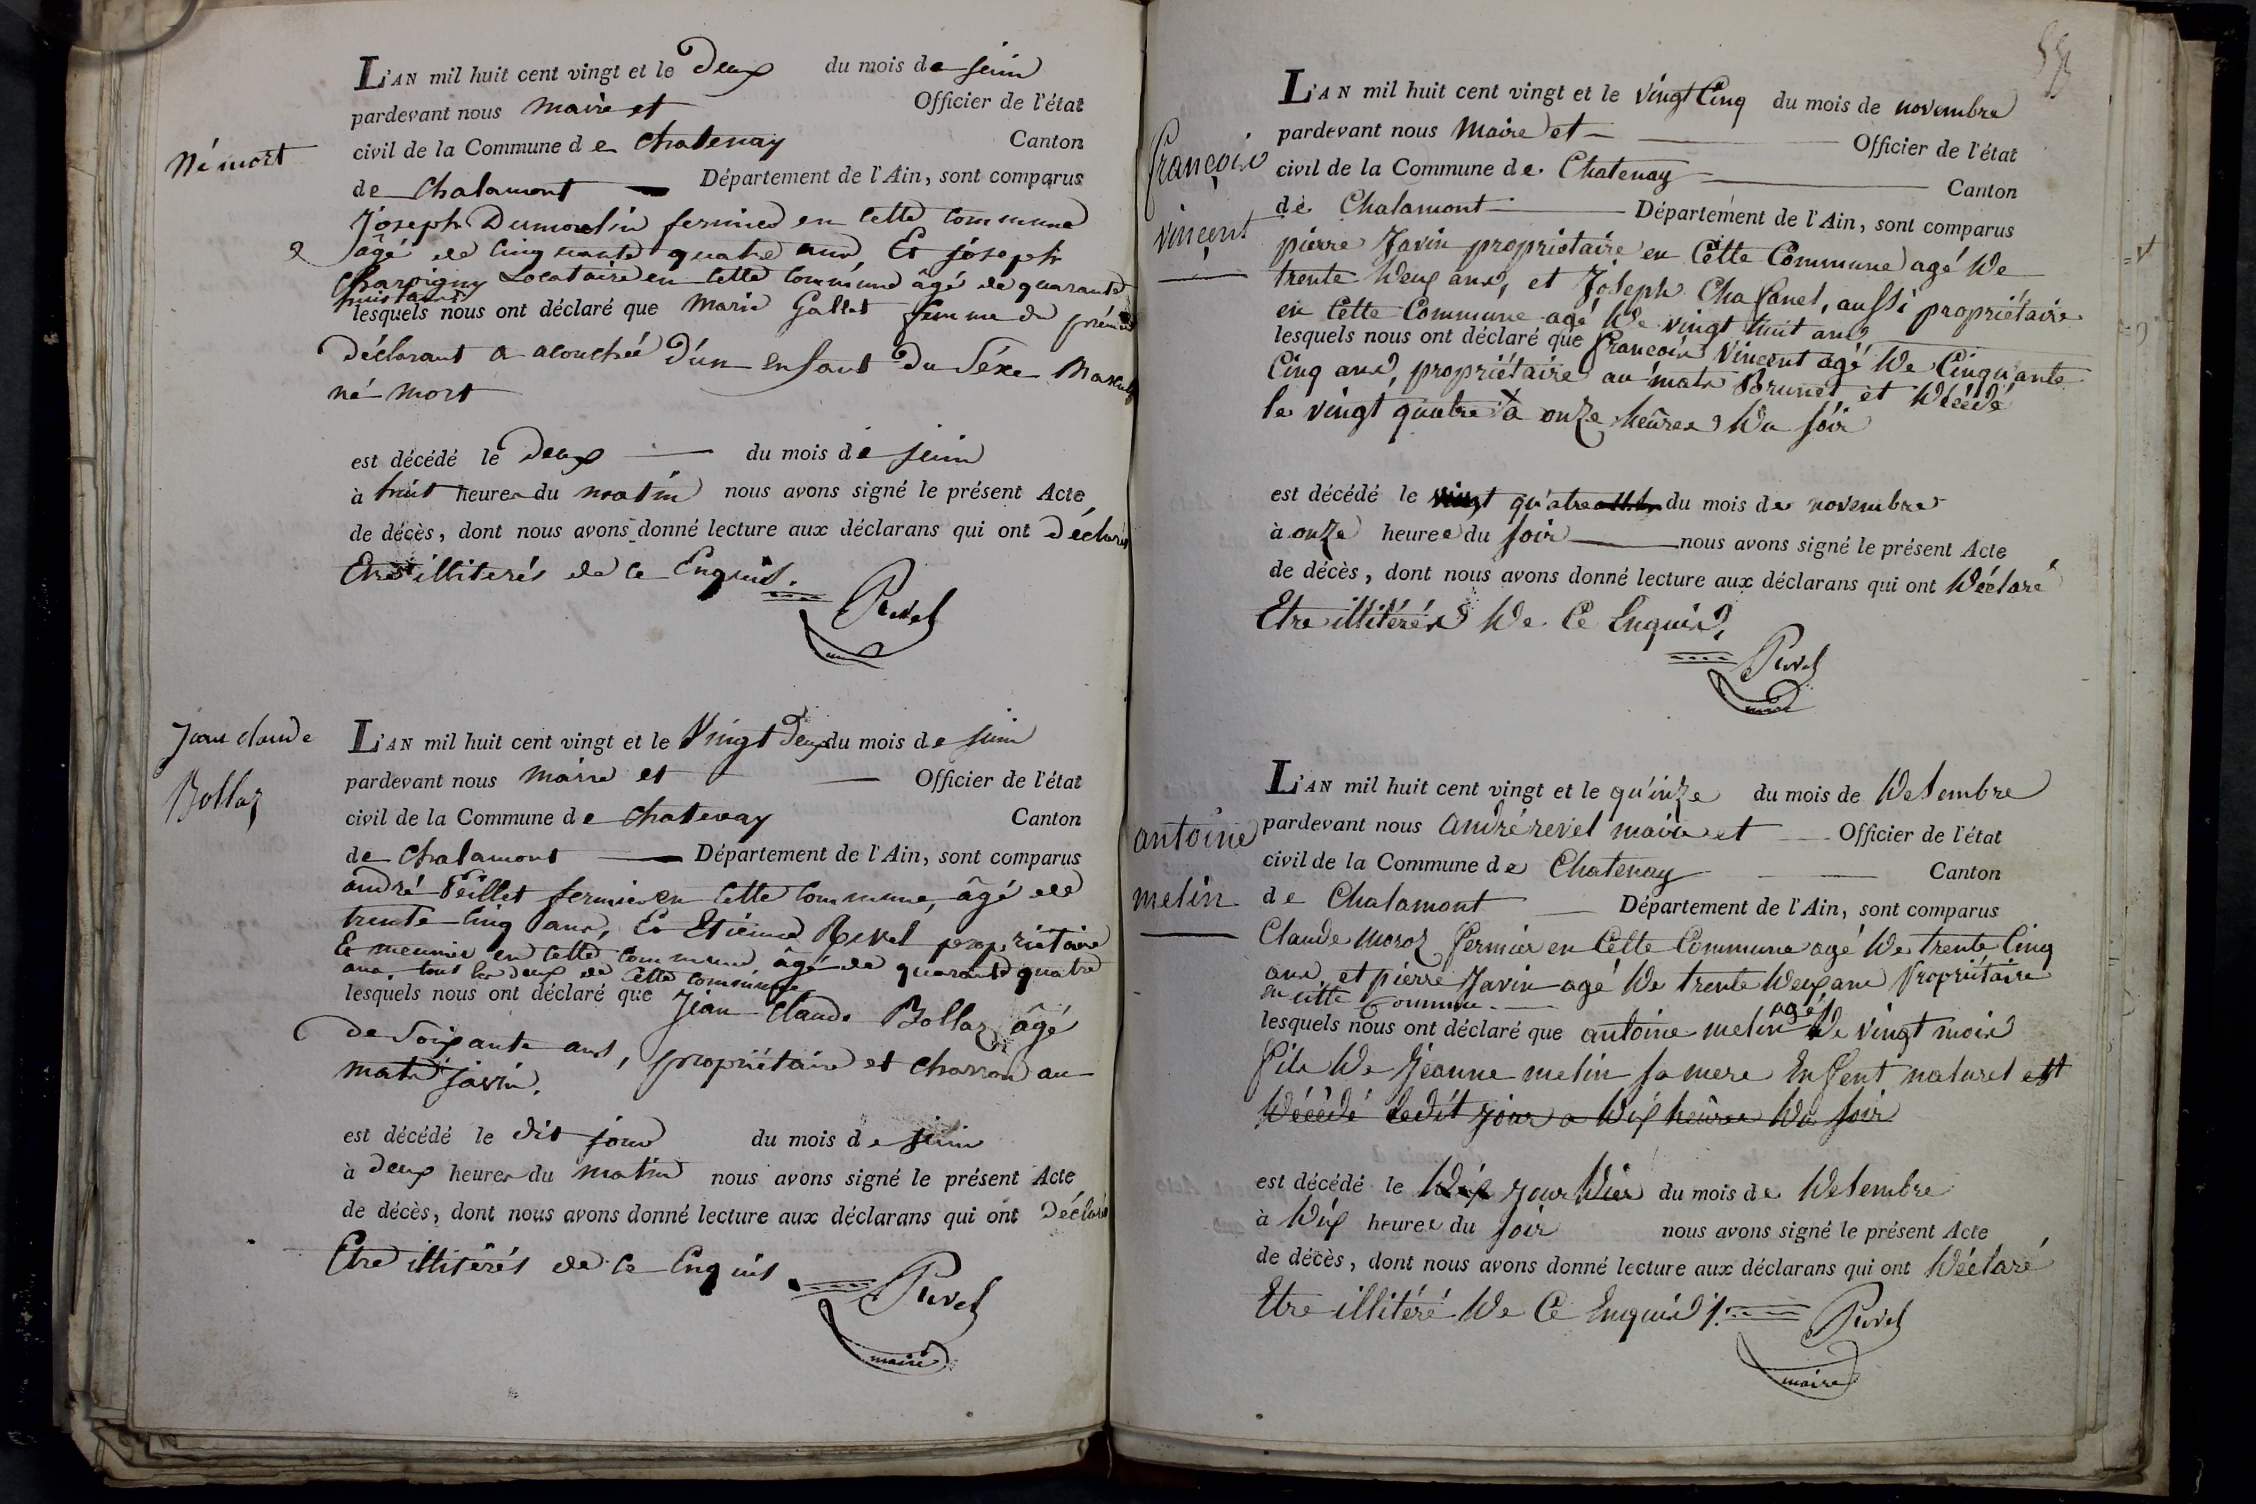 Né mort
L'AN mil huit cent vingt et le Deux du mois de juin
pardevant nous maire et Officier de l'état
civil de la Commune de chatenay Canton
de chalamont Département de l'Ain, sont comparus
Joseph Dumoulin fermier en cette commune
âgé de cinquante quatre ans, Et joseph
Charvigny Locataire en cette commune âgé de quarante
huit ans
lesquels nous ont déclaré que Marie Gallet femme du prémier
déclarant a acouchéé d'un enfant Du Séxe Masculin
né mort
est décédé le Deux du mois de juin
à huit heures du matin nous avons signé le présent Acte
de décès, dont nous avons donné lecture aux déclarans qui ont Déclarés
Etre illiterés de ce Enquis.
Revel
Jean claude
Bollaz
L'AN mil huit cent vingt et le Vingt Deux du mois de juin
pardevant nous maire et Officier de l'état
civil de la Commune de chatenay Canton
de chalamont Département de l'Ain, sont comparus
andré Peillet fermier en cette commune, âgé de
trente cinq ans, Et Etiénne Revel propriétaire
Et meunier en cette commune âgé de quarante quatre
ans. tous les deux de cette commune
lesquels nous ont déclaré que Jean Claude Bollaz âgé
de Soixante ans, propriétaire et charron au
mata javin.
est décédé le dit jour du mois de juin
à deux heures du matin nous avons signé le présent Acte
de décès, dont nous avons donné lecture aux déclarans qui ont Déclaré
Etre illitérés de ce Enquis.
Revel
maire
françois
vincent
L'AN mil huit cent vingt et le vingt Cinq du mois de novembre
pardevant nous Maire et Officier de l'état
civil de la Commune de Chatenay Canton
de Chalamont Département de l'Ain, sont comparus
pierre Javin propriétaire en Cette Commune agé de
trente deux ans, et Joseph Chafanel, aussi propriétaire
en Cette Commune agé de vingt huit ans
lesquels nous ont déclaré que françois Vincent agé de Cinquante
Cinq ans, propriétaire au mata Brunet et décédé
le vingt quatre à onze heûres du soir
est décédé le vingt qu'atre du mois de novembre
à onze heures du soir nous avons signé le présent Acte
de décès, dont nous avons donné lecture aux déclarans qui ont déclaré
Etre illitérés de Ce Enquis,
Revel
maire
antoine
melin
L'AN mil huit cent vingt et le qu'inze du mois de desembre
pardevant nous andré revel maire et Officier de l'état
civil de la Commune de Chatenay Canton
de Chalamont Département de l'Ain, sont comparus
Claude Moroz fermier en Cette Commune agé de trente Cinq
ans, et pierre Javin agé de trente deux ans Propriétaire
en cette Commune
lesquels nous ont déclaré que antoine melin agé de vingt mois
fils de Jeanne melin sa mere Enfent naturel est
décédé ledit jour a dix heûres du soir
est décédé le dix jour hier du mois de desembre
à dix heures du soir nous avons signé le présent Acte
de décès, dont nous avons donné lecture aux déclarans qui ont déclaré
Etre illitéré de Ce Enquis
Revel
maire